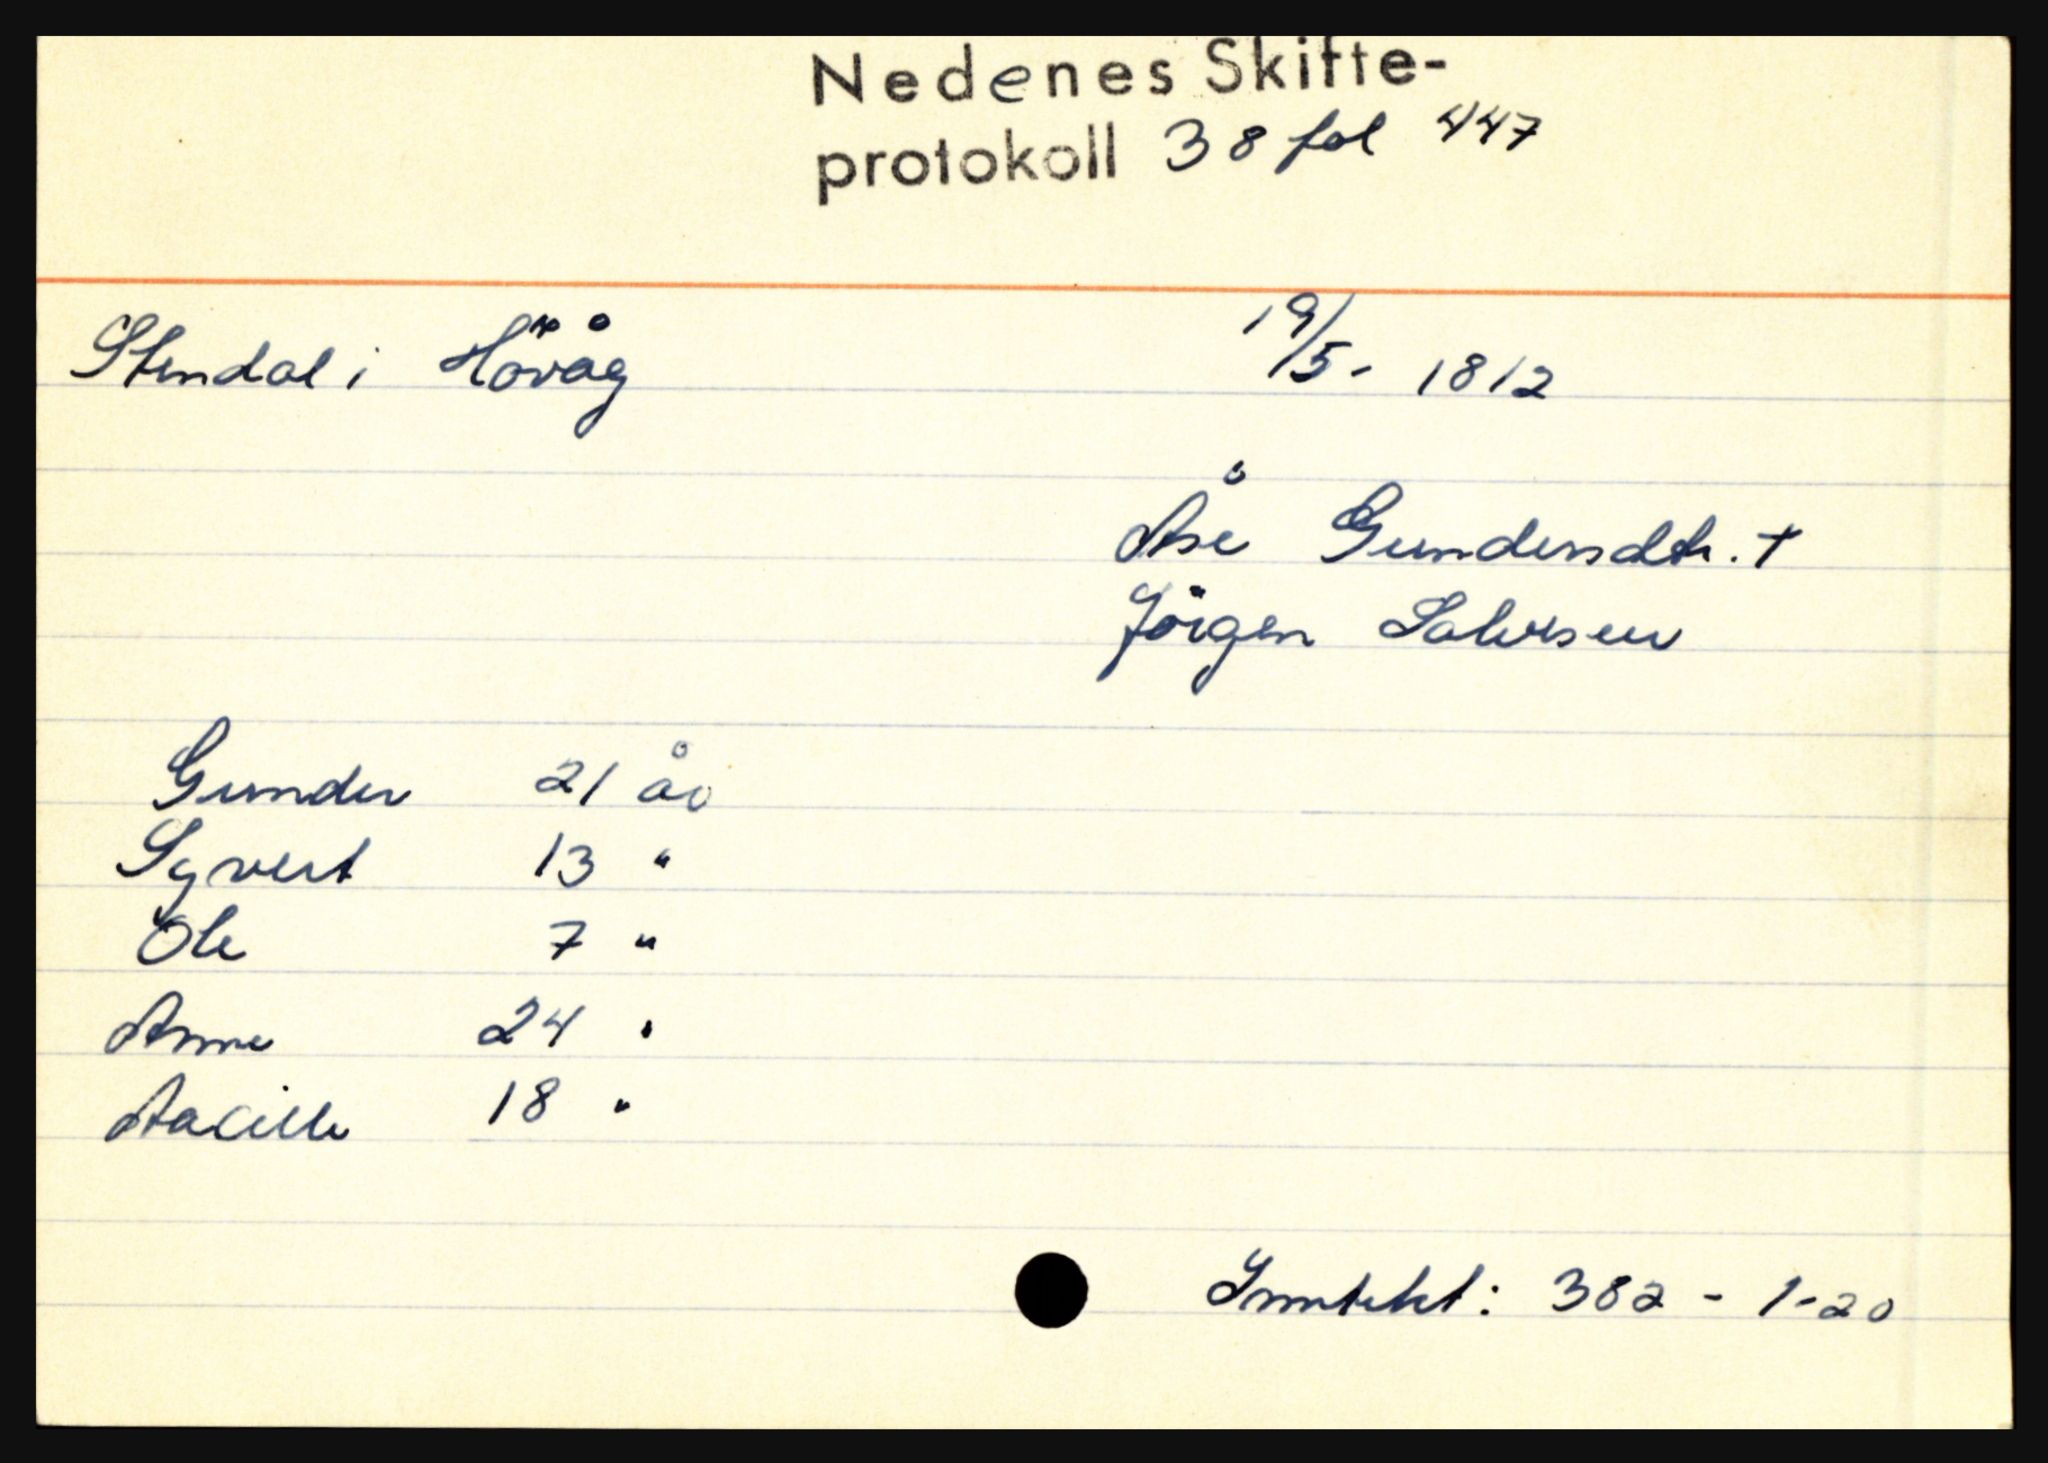 Nedenes Skifte-
protokoll 38 fol 447
Stendal i Höväg 19/5 - 1812
Åse Gundersdtr. †
Jörgen Salvesen
Gunder 21 år
Syvert 13 "
Ole 7 "
Anne 24 "
Aacille 18 "
Inntekt: 382 - 1-20